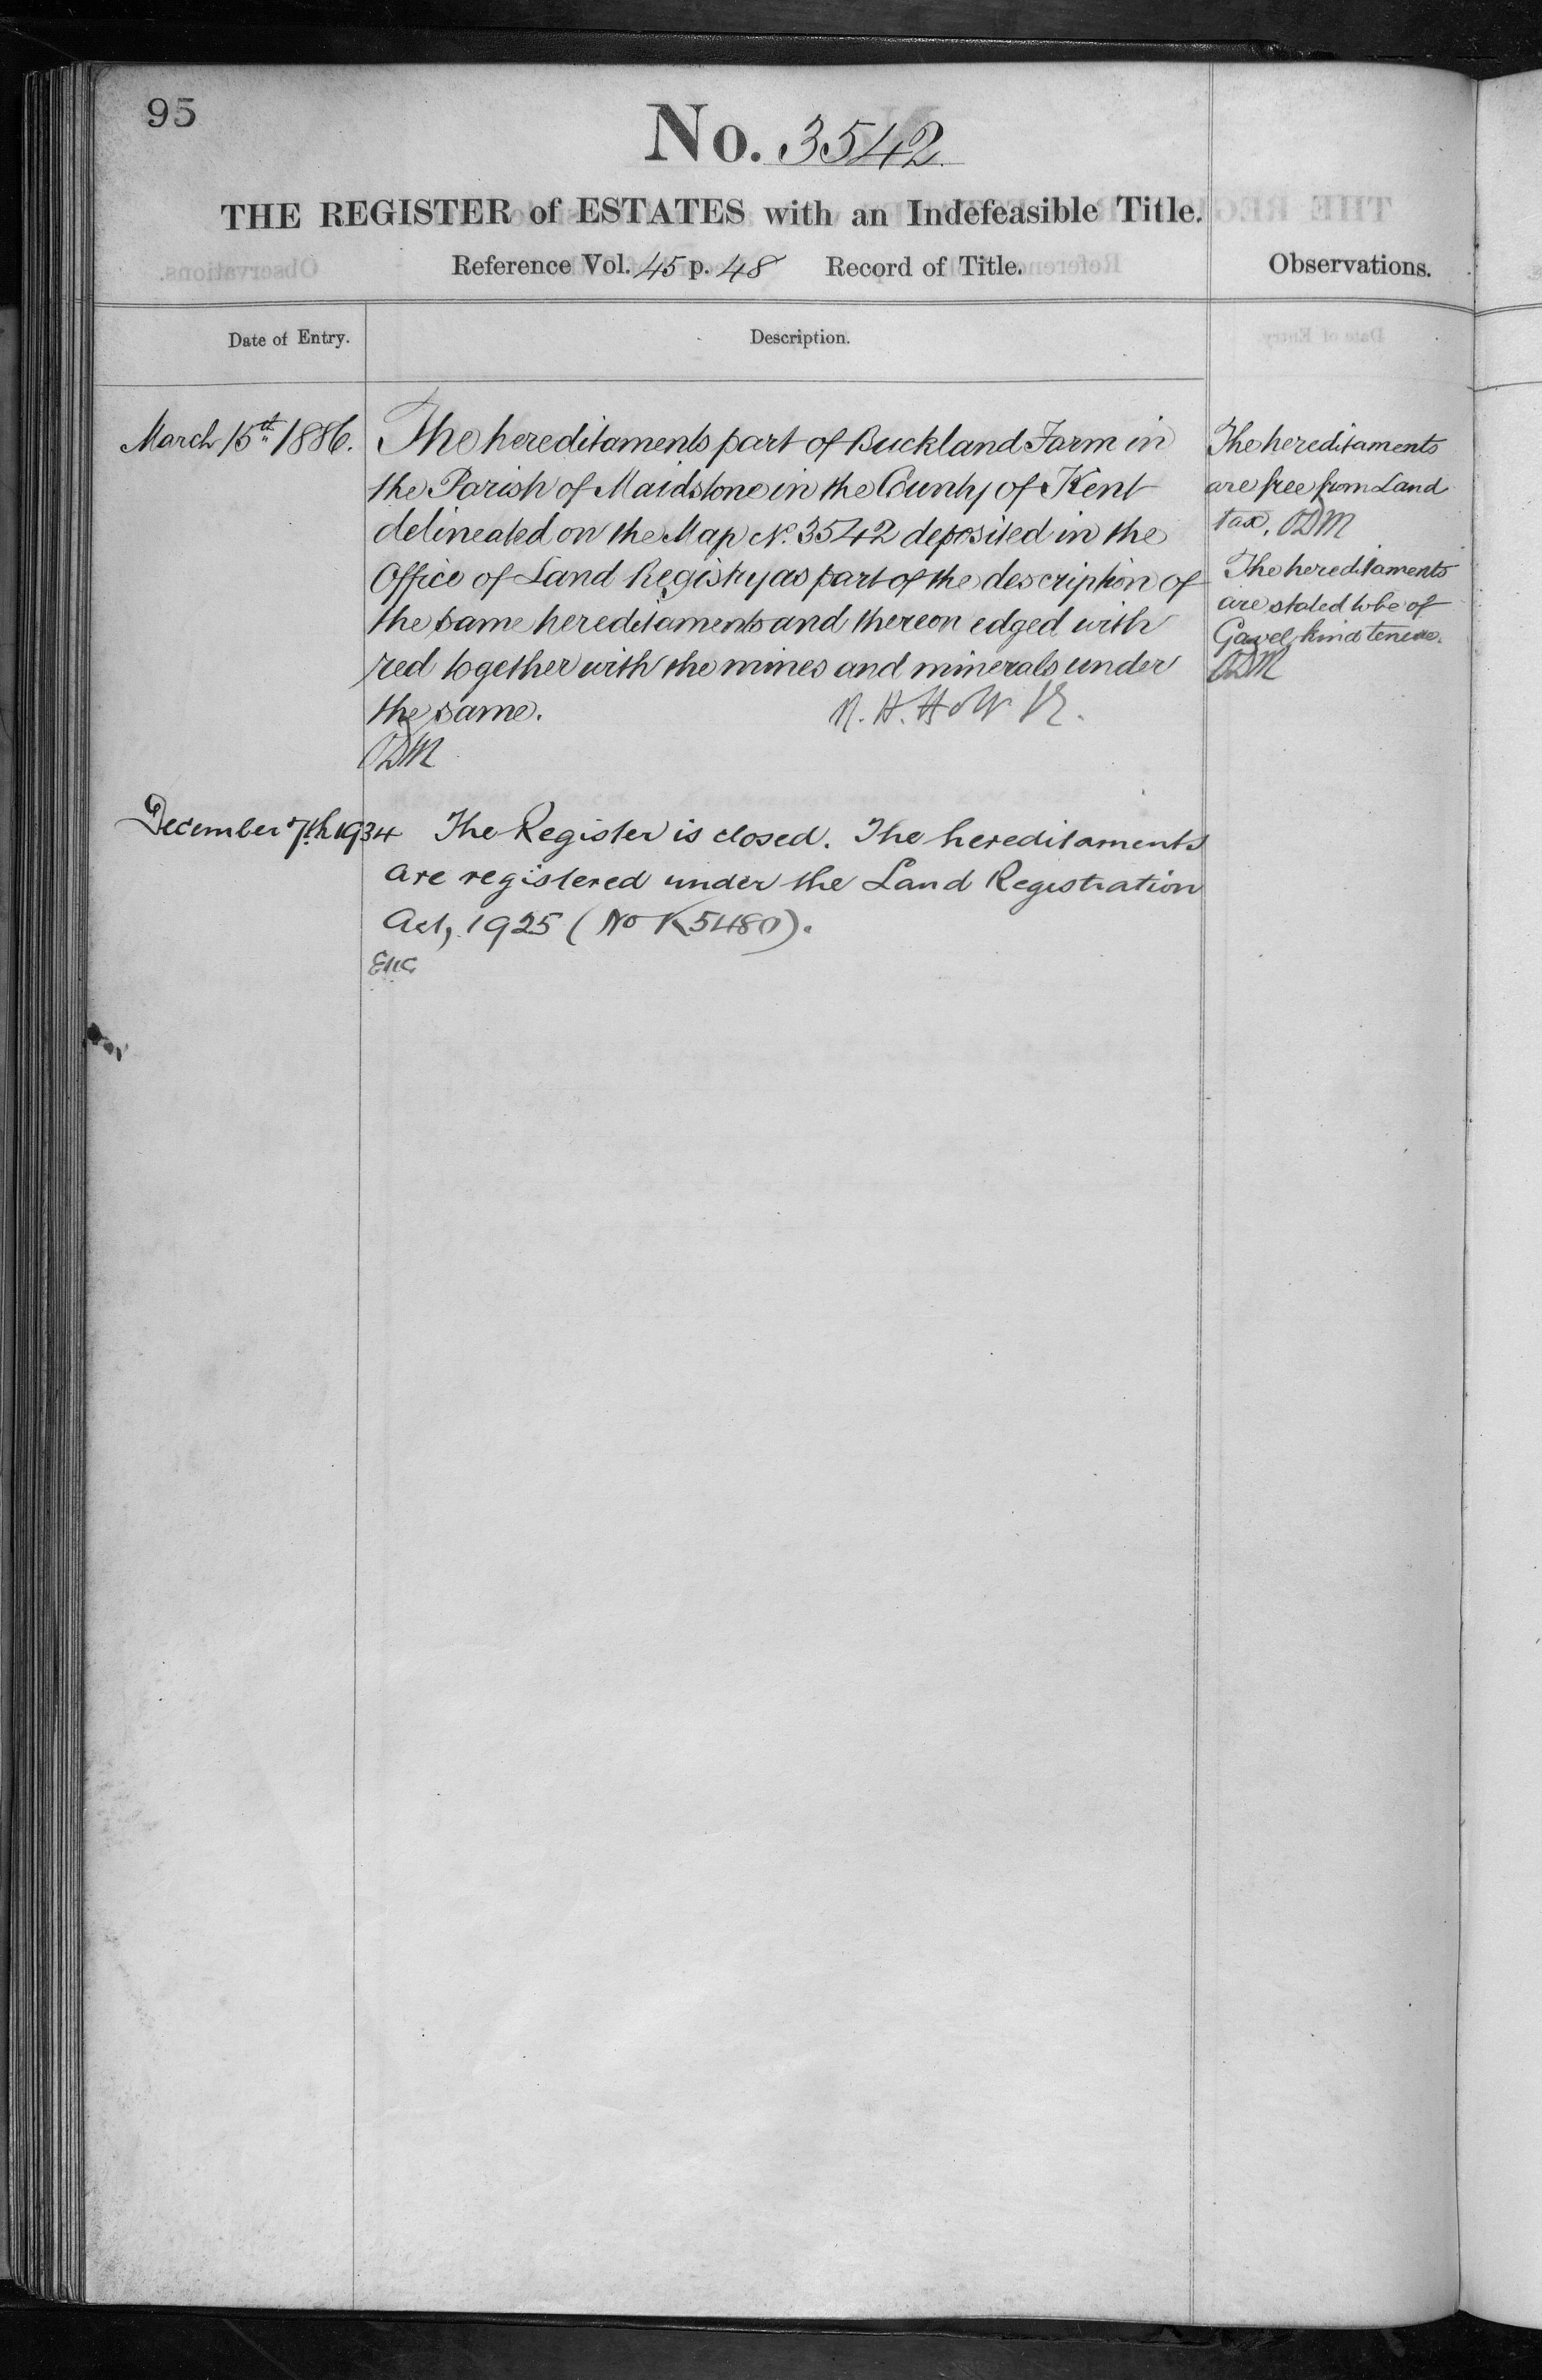 95
No. 3542
THE REGISTER of ESTATES with an Indefeasible Title.
Reference Vol. 45 p. 48 Record of Title.
Observations.
Date of Entry.
Description.
March 15th 1886.
The hereditaments part of Buckland Farm in
the Parish of Maidstone in the County of Kent
delineated on the Map No. 3542 deposited in the
Office of Land Registry as part of the description of
the same hereditaments and thereon edged with
red together with the mines and minerals under
the same.
ODM
The hereditaments
are free from Land
tax. ODM
The hereditaments
are stated to be of
Gavel kind tenure.
ODM
December 7th 1934
The Register is closed. The hereditaments
are registered under the Land Registration
Act, 1925 (No K5480).